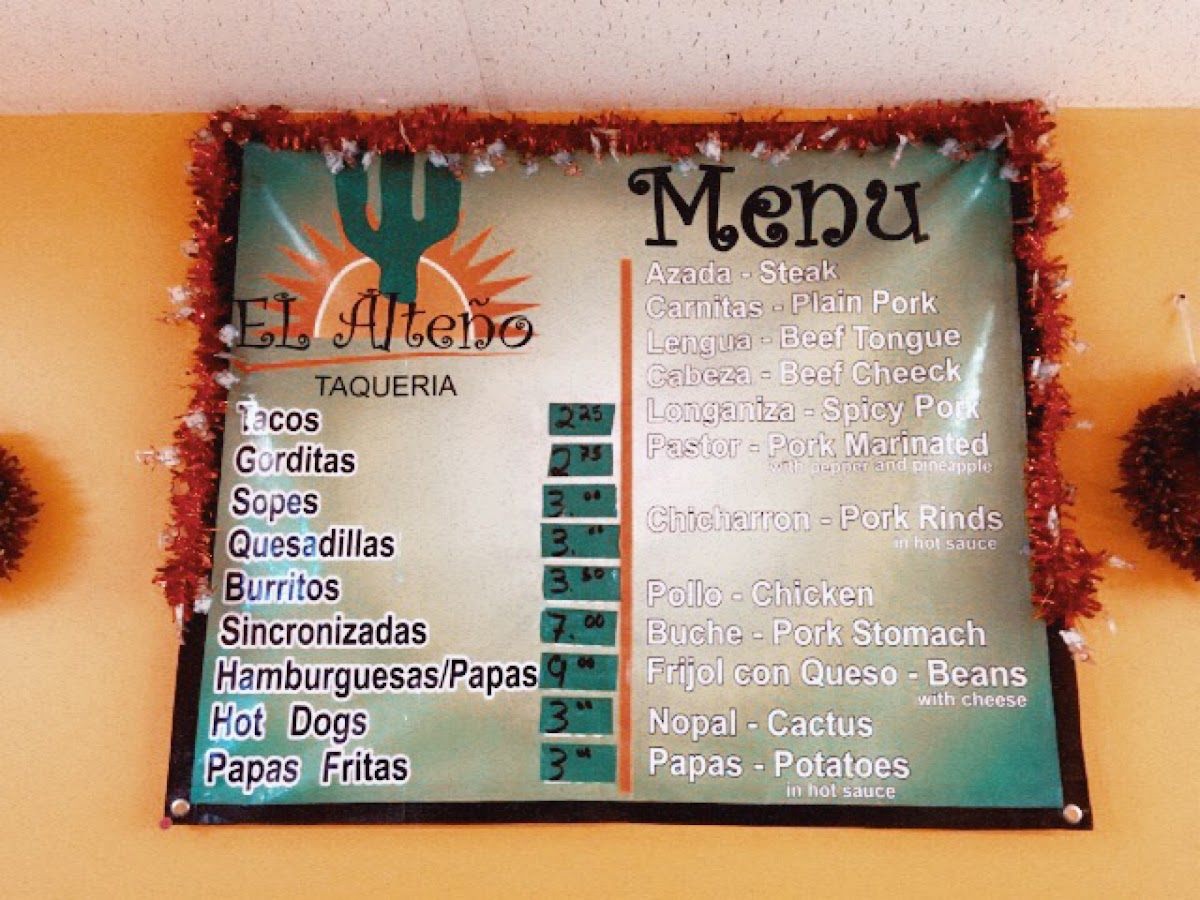 EL Alteño
TAQUERIA
Tacos 2.25
Gorditas 2.75
Sopes 3.00
Quesadillas 3.00
Burritos 3.50
Sincronizadas 7.00
Hamburguesas/Papas 9.00
Hot Dogs 3.00
Papas Fritas 3.00
Menu
Azada - Steak
Carnitas - Plain Pork
Lengua - Beef Tongue
Cabeza - Beef Cheeck
Longaniza - Spicy Pork
Pastor - Pork Marinated
with pepper and pineapple
Chicharron - Pork Rinds
in hot sauce
Pollo - Chicken
Buche - Pork Stomach
Frijol con Queso - Beans
with cheese
Nopal - Cactus
Papas - Potatoes
in hot sauce